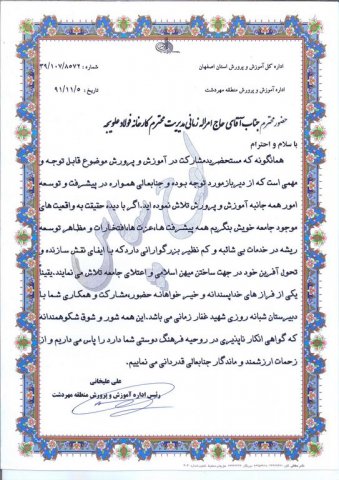 اداره کل آموزش و پرورش استان اصفهان
شماره : ۳۹/۱۰۷/۸۵۷۲
اداره آموزش و پرورش منطقه مهردشت
تاریخ : ۹۱/۱۱/۵
حضور محترم جناب آقای حاج امراله زمانی مدیریت محترم کارخانه فولاد علویجه
با سلام و احترام
همانگونه که مستحضرید مشارکت در آموزش و پرورش موضوع قابل توجه و
مهمی است که از دیرباز مورد توجه بوده و جنابعالی همواره در پیشرفت و توسعه
امور همه جانبه آموزش و پرورش تلاش نموده اید. اگر با دیده حقیقت به واقعیت های
موجود جامعه خویش بنگریم همه پیشرفت ها، عزت ها، افتخارات و مظاهر توسعه
ریشه در خدمات بی شائبه و کم نظیر بزرگوارانی دارد که با ایفای نقش سازنده و
تحول آفرین خود در جهت ساختن میهن اسلامی و اعتلای جامعه تلاش می نمایند. یقینا
یکی از فراز های خداپسندانه و خیر خواهانه حضور، مشارکت و همکاری شما با
دبیرستان شبانه روزی شهید غفار زمانی می باشد. این همه شور و شوق شکوهمندانه
که گواهی انکار ناپذیری در روحیه فرهنگ دوستی شما دارد را پاس می داریم و از
زحمات ارزشمند و ماندگار جنابعالی قدردانی می نماییم.
علی علیخانی
رئیس اداره آموزش و پرورش منطقه مهردشت